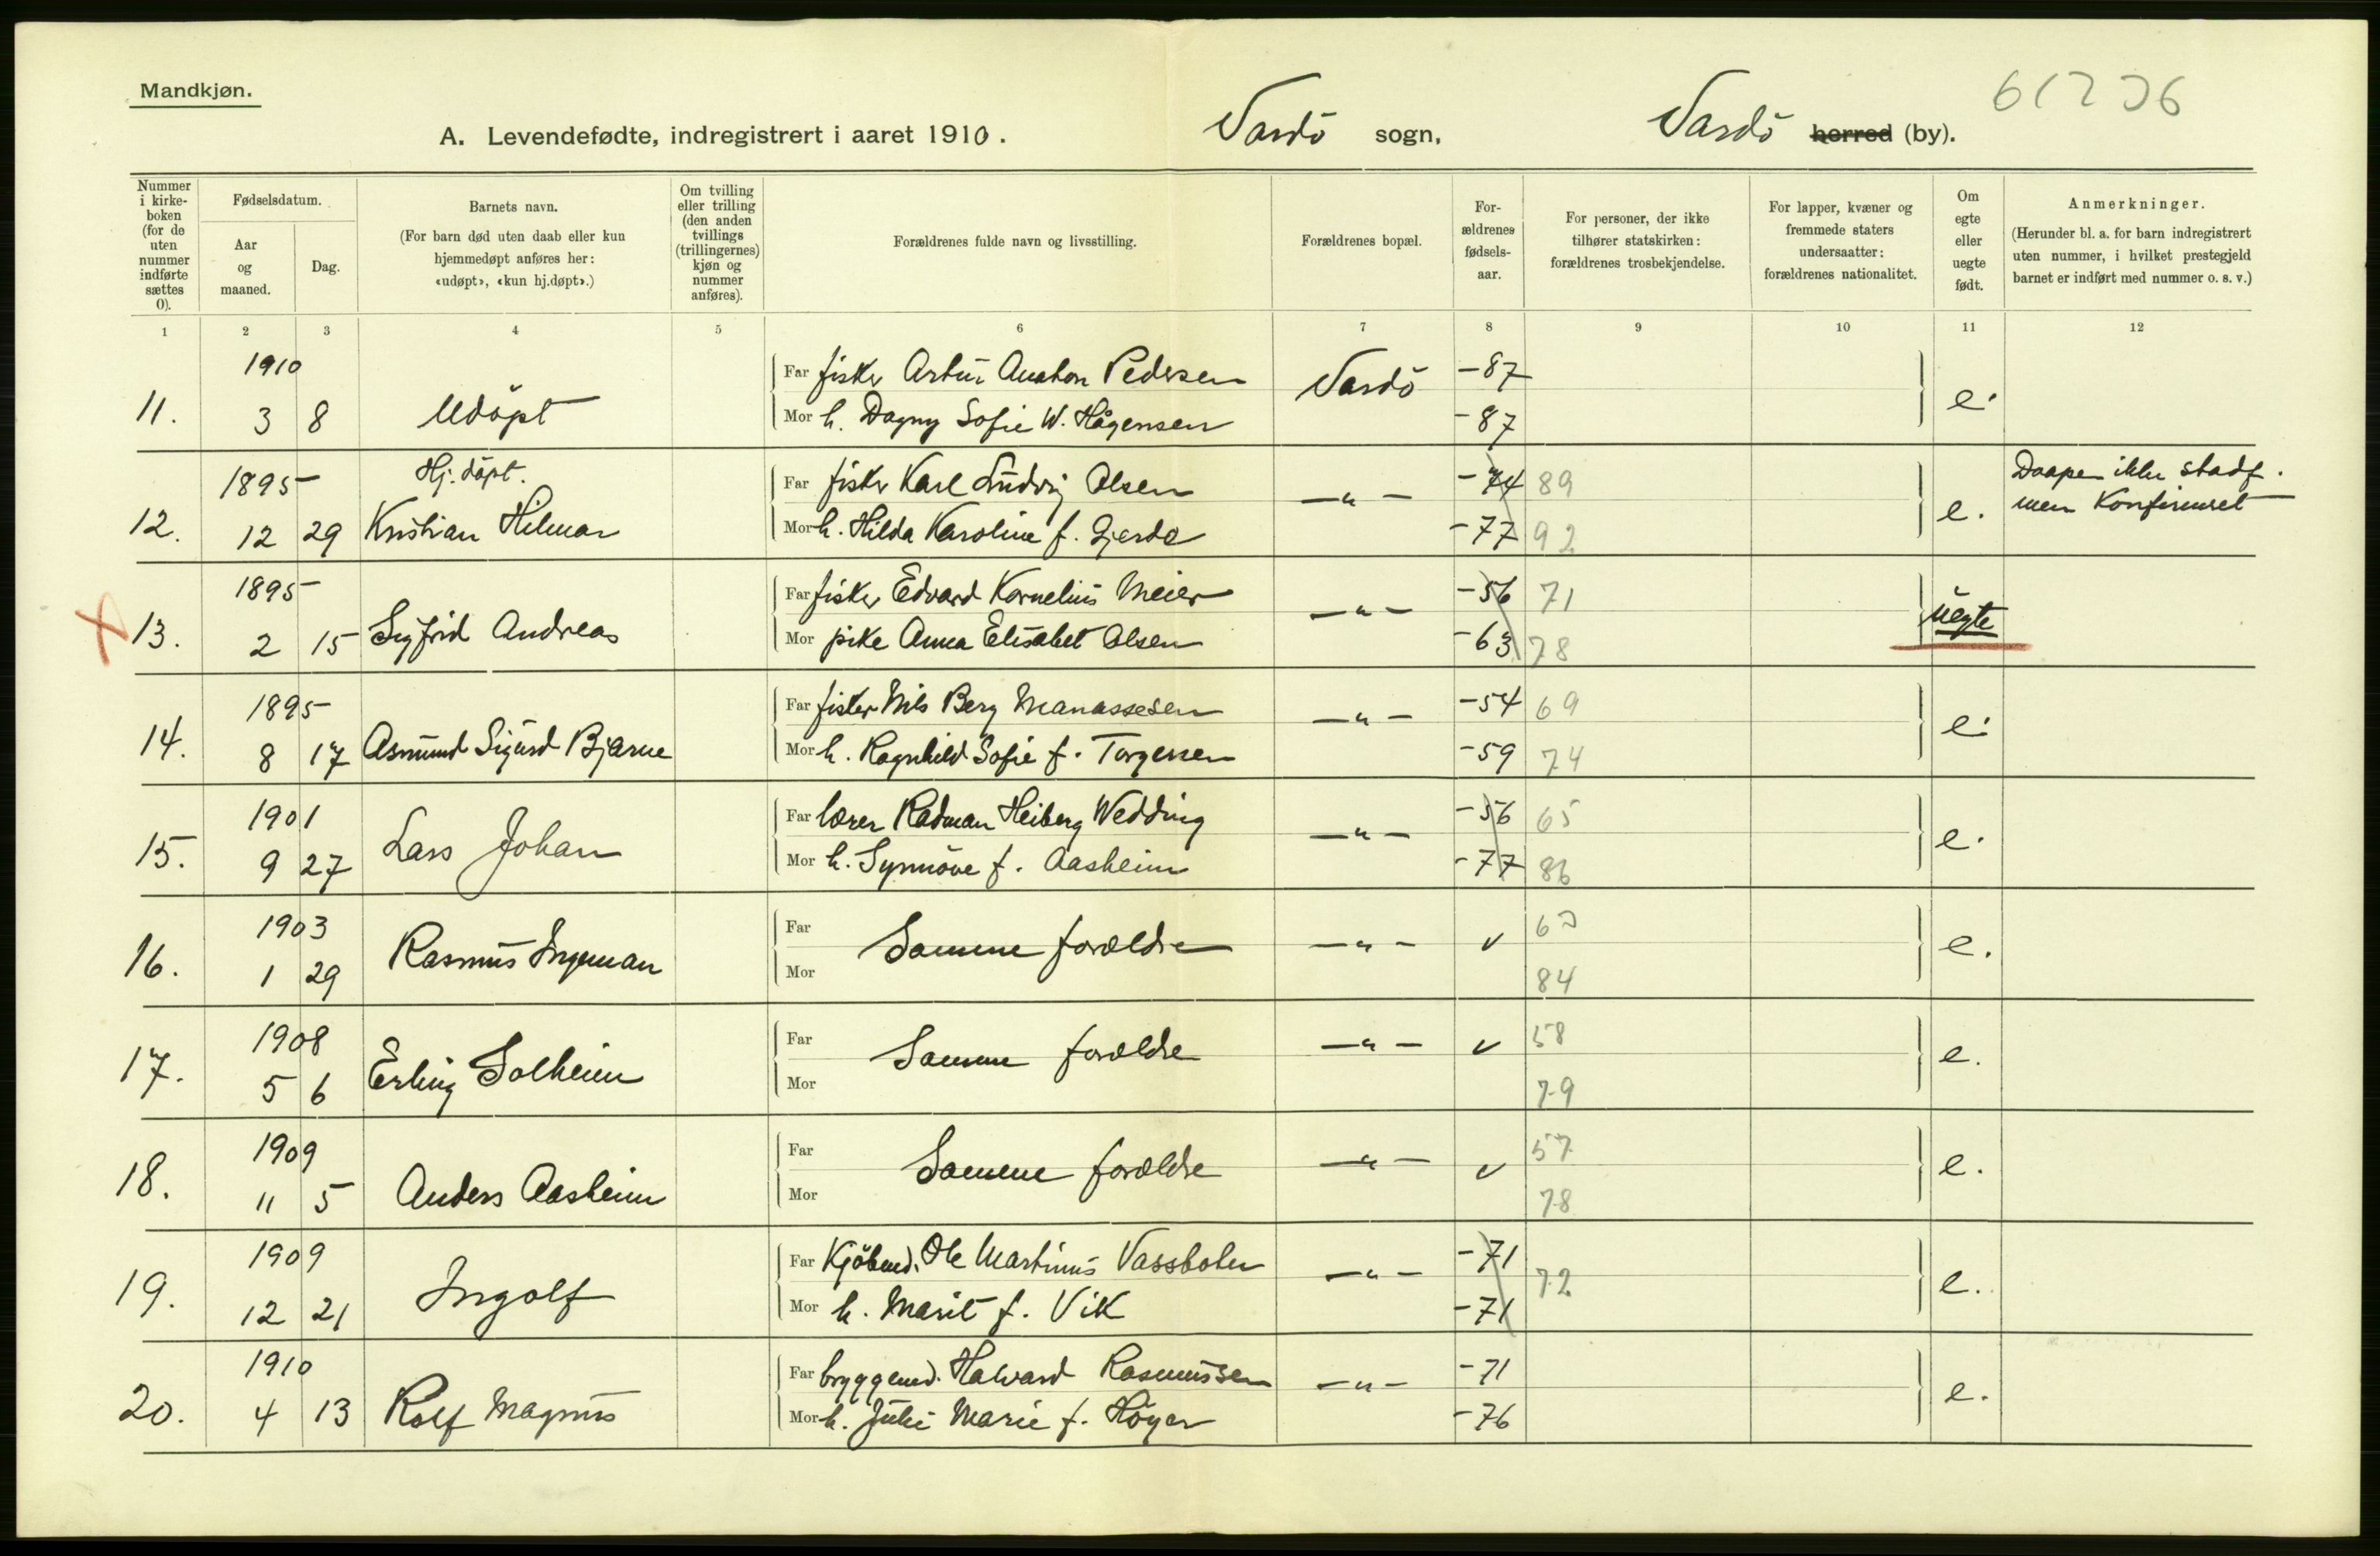 Mandkjøn.
61236
A. Levendefødte, indregistrert i aaret 1910. Vardö sogn, Vardö herred (by).
Nummer i kirke-boken (for de uten nummer indførte sættes 0).
Fødselsdatum.
Aar og maaned.
Dag.
Barnets navn.
(For barn død uten daab eller kun hjemmedøpt anføres her: «udøpt», «kun hj.døpt».)
Om tvilling eller trilling (den anden tvillings (trillingernes) kjøn og nummer anføres).
Forældrenes fulde navn og livsstilling.
Forældrenes bopæl.
For-ældrenes fødsels-aar.
For personer, der ikke tilhører statskirken: forældrenes trosbekjendelse.
For lapper, kvæner og fremmede staters undersaatter: forældrenes nationalitet.
Om egte eller uegte født.
Anmerkninger.
(Herunder bl. a. for barn indregistrert uten nummer, i hvilket prestegjeld barnet er indført med nummer o. s. v.)
1 2 3 4 5 6 7 8 9 10 11 12
1910 Far fisker Artur Anathon Pedersen Vardö -87
11. 3 8 Udöpt Mor h. Dagny Sofie W. Hågensen -87 e.
1895 Hj. döpt. Far fisker Karl Ludvig Olsen -„- -74 89 Daapen ikke stadf.
12. 12 29 Kristian Hilmar Mor h. Hilda Karoline f. Gjerde -77 92 e. men Konfirmert
1895 Far fisker Edvard Kornelius Meier -„- -56 71
13. 2 15 Sigfrid Andreas Mor pike Anna Elisabet Olsen -63 78 uegte
1895 Far fisker Nils Berg Manassesen -„- -54 69
14. 8 17 Asmund Sigurd Bjarne Mor h. Ragnhild Sofie f. Torgersen -59 74 e.
1901 Far lærer Radman Heiberg Wedding -„- -56 65
15. 9 27 Lars Johan Mor h. Synnöve f. Aasheim -77 86 e.
1903 Far 63
16. 1 29 Rasmus Ingeman Mor Samme forældre -„- v 84 e.
1908 Far 58
17. 5 6 Erling Solheim Mor Samme forældre -„- v 79 e.
1909 Far 57
18. 11 5 Anders Aasheim Mor Samme forældre -„- v 78 e.
1909 Far Kjöbmd. Ole Martinus Vassbotn -„- -71 72
19. 12 21 Ingolf Mor h. Marit f. Vik -71 e.
1910 Far bryggemd. Halvard Rasmussen -„- -71
20. 4 13 Rolf Magnus Mor h. Julie Marie f. Höyer -76 e.